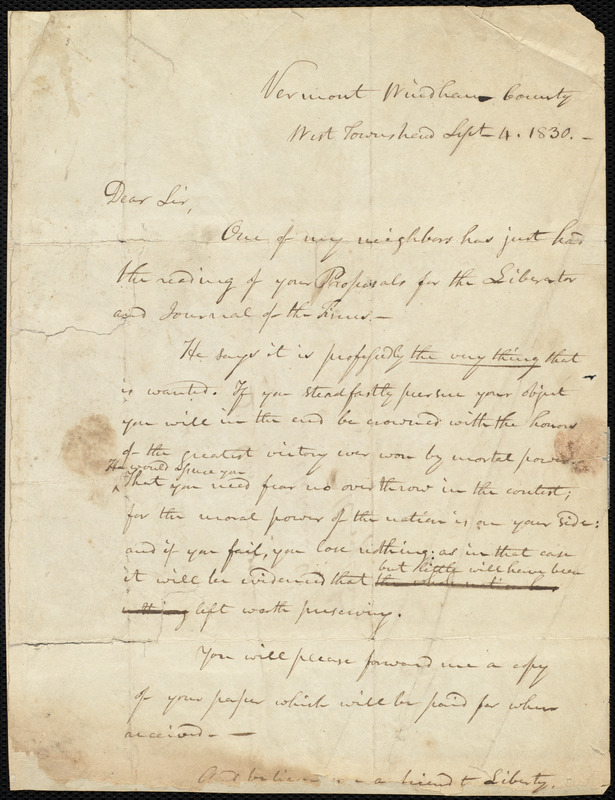 Vermont Windham County
West Townshend Sept 4. 1830.-
Dear Sir,
One of my neighbors has just had
the reading of your Proposals for the Liberator
and Journal of the Times.-
He says it is professedly the very thing that
is wanted. If you steadfastly pursue your object
you will in the end be crowned with the honors
of the greatest victory ever won by mortal power.-
He would assure you
That you need fear no overthrow in the contest;
for the moral power of the nation is on your side:
and if you fail, you lose nothing: as in that case
but little will have been
it will be evidenced that the whole nation has
nothing left worth preserving.
You will please forward me a copy
of your paper which will be paid for when
received.-
And believe me a friend to Liberty.